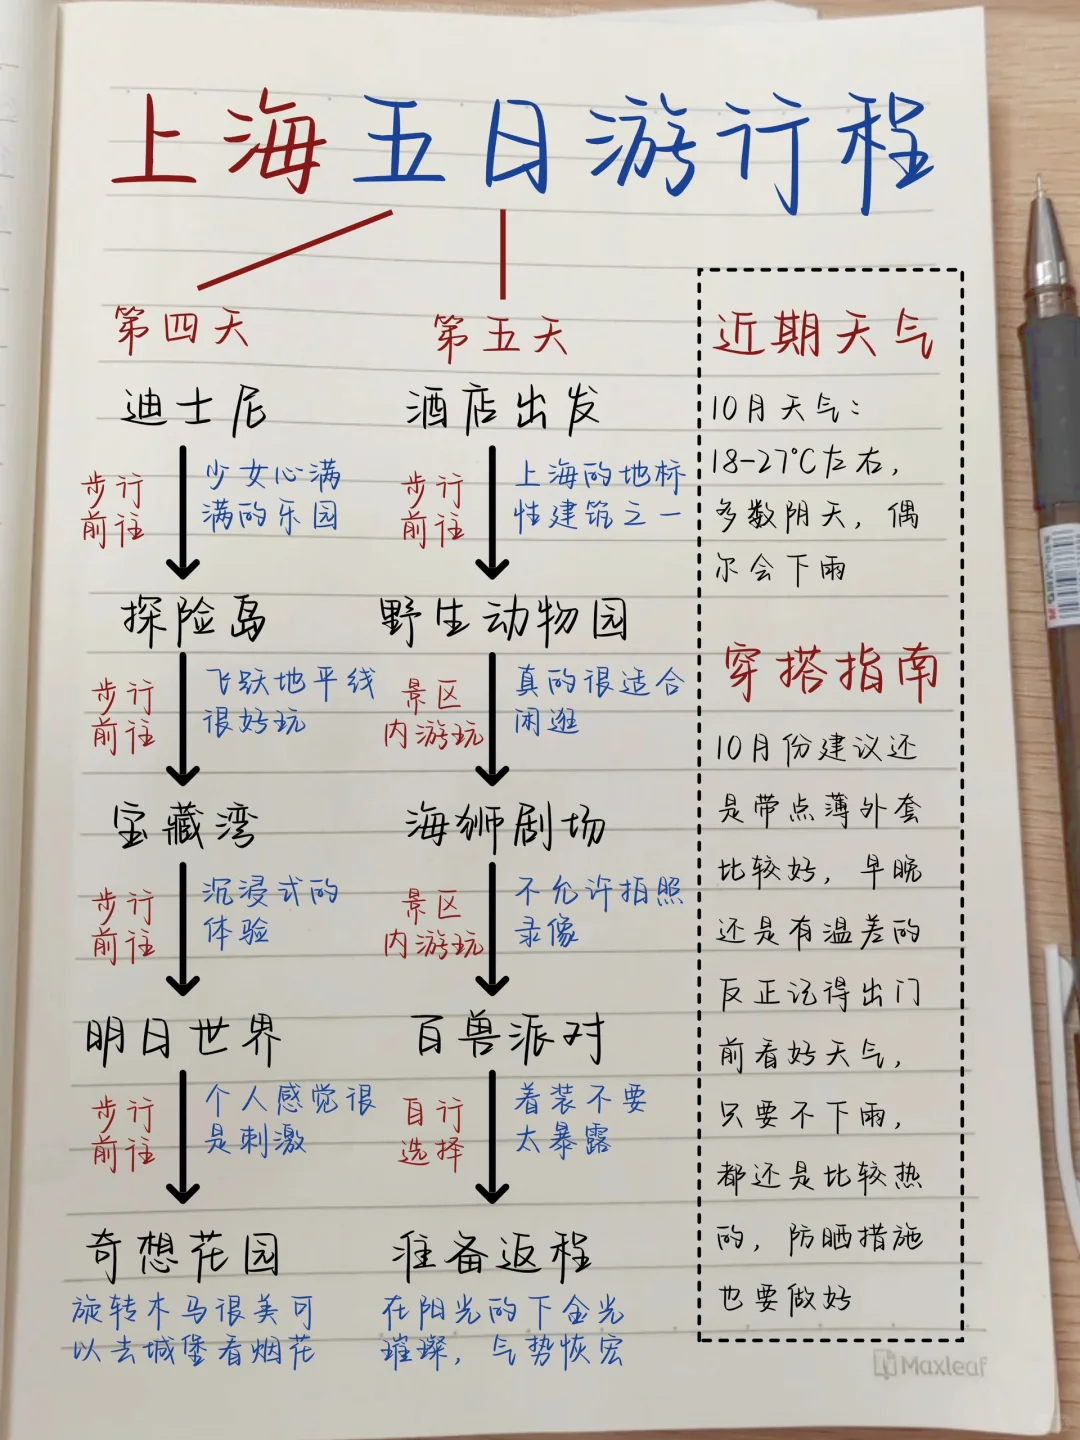 上海五日游行程
第四天
迪士尼
步行
前往
少女心满
满的乐园
探险岛
步行
前往
飞跃地平线
很好玩
宝藏湾
步行
前往
沉浸式的
体验
明日世界
步行
前往
个人感觉很
是刺激
奇想花园
旋转木马很美可
以去城堡看烟花
第五天
酒店出发
步行
前往
上海的地标
性建筑之一
野生动物园
景区
内游玩
真的很适合
闲逛
海狮剧场
景区
内游玩
不允许拍照
录像
百兽派对
自行
选择
着装不要
太暴露
准备返程
在阳光的下金光
璀璨，气势恢宏
近期天气
10月天气：
18-27℃左右，
多数阴天，偶
尔会下雨
穿搭指南
10月份建议还
是带点薄外套
比较好，早晚
还是有温差的
反正记得出门
前看好天气，
只要不下雨，
都还是比较热
的，防晒措施
也要做好
Maxleaf